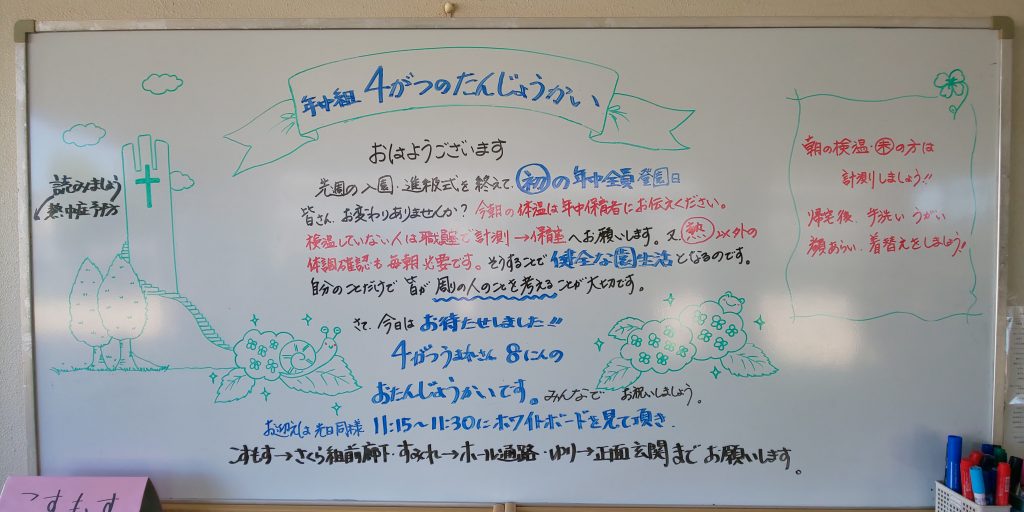 年中組 4がつのたんじょうかい
おはようございます
先週の入園・進級式を終えて、初の年中全員登園日
皆さん、お変わりありませんか? 今朝の体温は年中保育者にお伝えください。
検温していない人は職員室で計測→保育室へお願いします。又、熱以外の
体調確認も毎朝必要です。そうすることで健全な園生活となるのです。
自分のことだけで 皆が周りの人のことを考えることが大切です。
さて、今日は お待たせしました!!
4がつうまれさん 8にんの
おたんじょうかいです。みんなで お祝いしましょう。
お迎えは先日同様 11:15〜11:30にホワイトボードを見て頂き、
こすもす→さくら組前廊下・すみれ→ホール通路・ゆり→正面玄関までお願いします。
読みましょう
熱中症予防
朝の検温・の方は
計測しましょう!!
帰宅後、手洗い うがい
顔あらい、着替えをしましょう!
こすもす